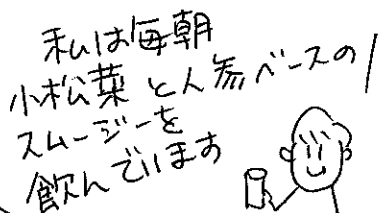 私は毎朝
小松菜と人参ベースの
スムージーを
飲んでいます